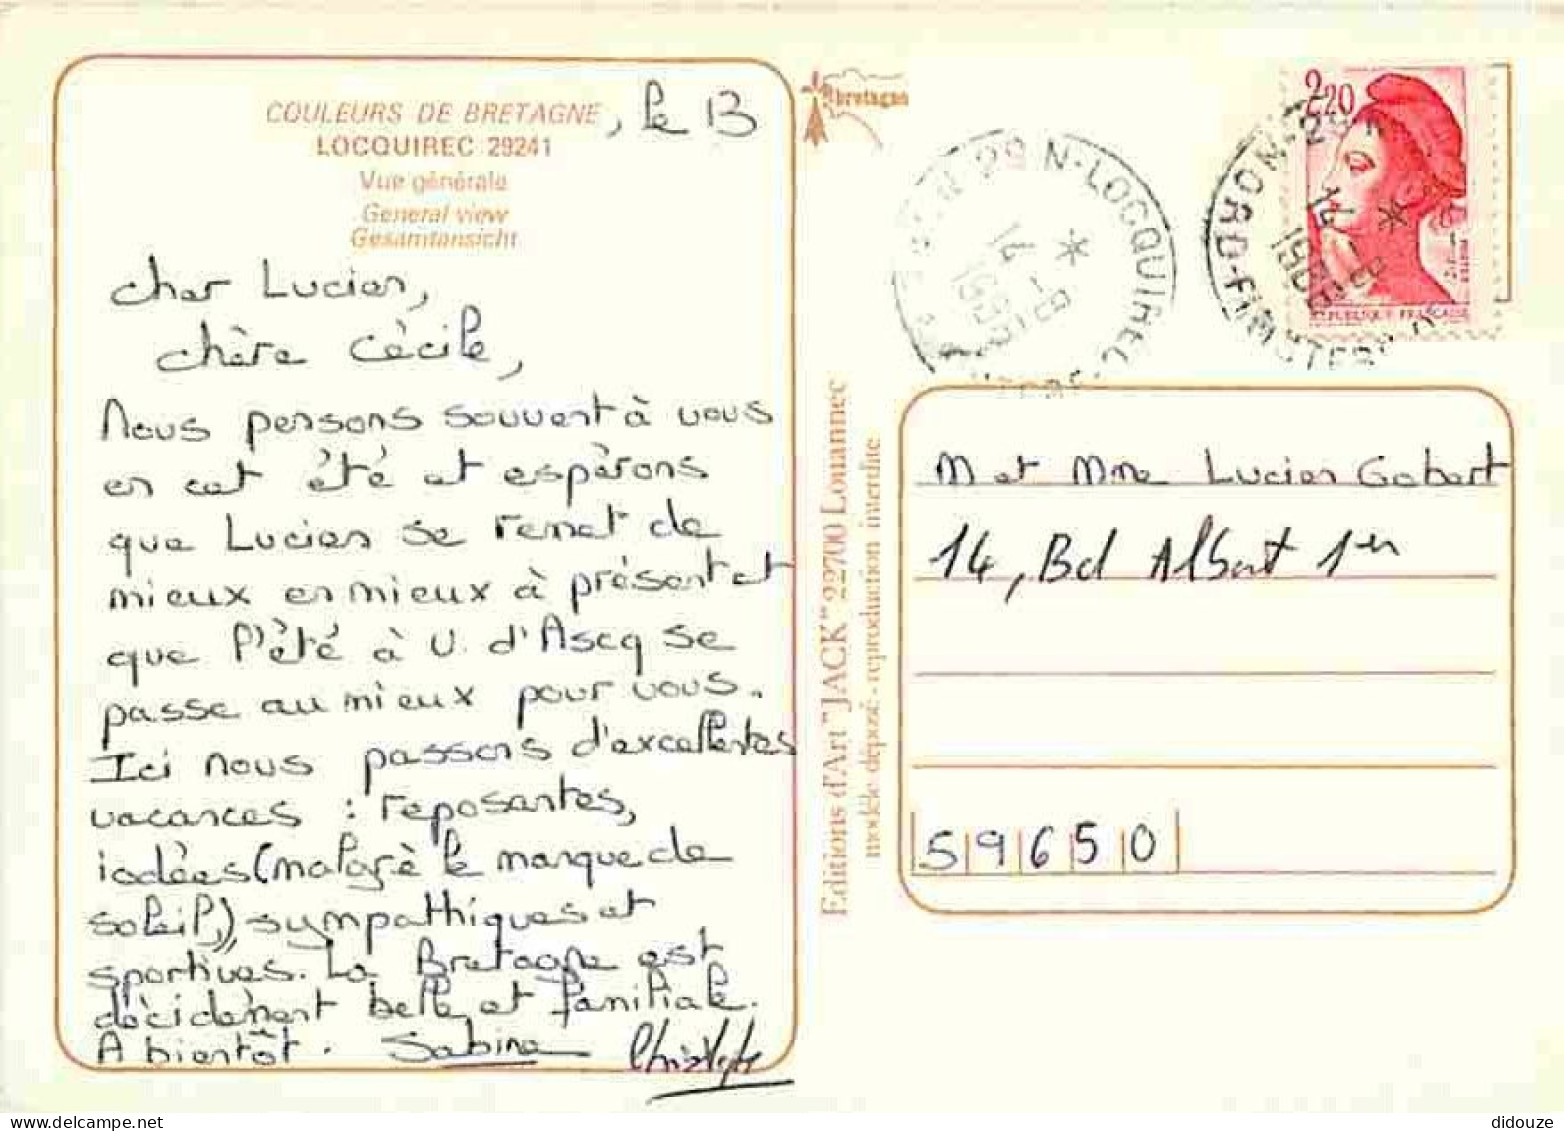 COULEURS DE BRETAGNE, le 13
LOCQUIREC 29241
Vue générale
General view
Gesamtansicht
Cher Lucien,
chère Cécile,
Nous pensons souvent à vous
en cet été et espérons
que Lucien se remet de
mieux en mieux à présent et
que l'été à V. d'Ascq se
passe au mieux pour vous.
Ici nous passons d'excellentes
vacances : reposantes,
iodées (malgré le manque de
soleil,) sympathiques et
sportives. La Bretagne est
décidément belle et familiale.
A bientôt. Sabine Christophe
bretagne
Editions d'Art "JACK" 22700 Louannec
modèle déposé - reproduction interdite
N-LOCQUIREC
14
2,20
REPUBLIQUE FRANÇAISE
14
M et Mme Lucien Gobert
14, Bd Albert 1er
59650
didouze